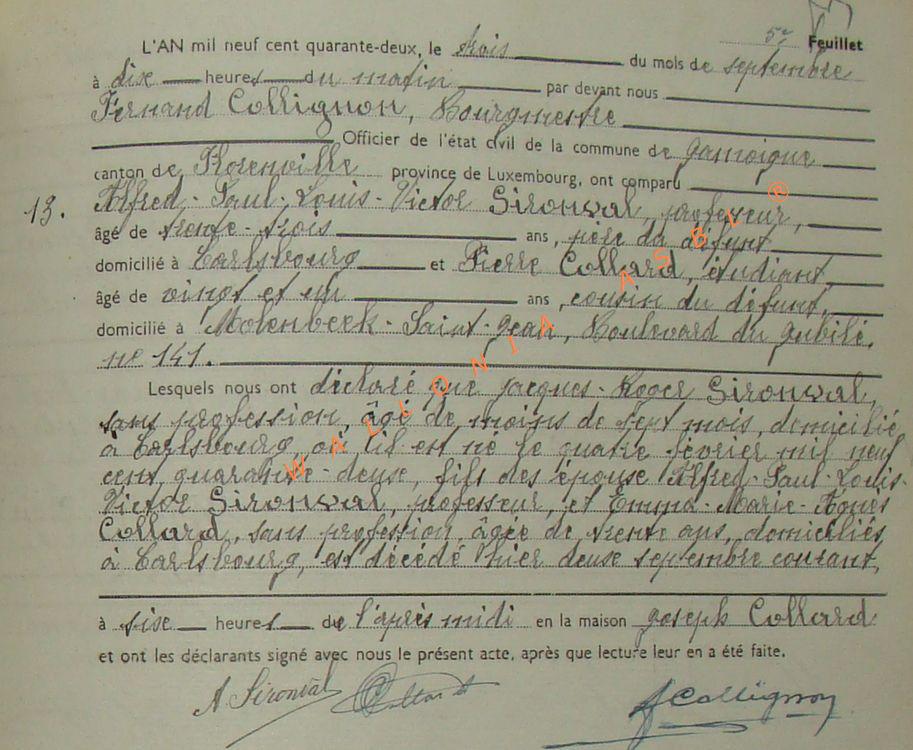 5e Feuillet
L'AN mil neuf cent quarante-deux, le trois du mois de septembre
à dix heures du matin par devant nous
Fernand Collignon, Bourgmestre
Officier de l'état civil de la commune de Jamoigne
canton de Florenville province de Luxembourg, ont comparu
13. Alfred-Paul-Louis-Victor Sironval, professeur,
âgé de trente-trois ans, père du défunt
domicilié à Carlsbourg et Pierre Collard, étudiant,
âgé de vingt et un ans, cousin du défunt,
domicilié à Molenbeek-Saint-Jean, Boulevard du Jubilé,
no 141.
Lesquels nous ont déclaré que Jacques-Roger Sironval,
sans profession, âgé de moins de sept mois, domicilié
à Carlsbourg, où il est né le quatre février mil neuf
cent quarante-deux, fils des époux Alfred-Paul-Louis-
Victor Sironval, professeur, et Emma-Marie-Agnès
Collard, sans profession, âgée de trente ans, domiciliés
à Carlsbourg, est décédé hier deux septembre courant,
à six heures de l'après midi en la maison Joseph Collard
et ont les déclarants signé avec nous le présent acte, après que lecture leur en a été faite.
A. Sironval Collard FCollignon
WALLONIA ASBL ®